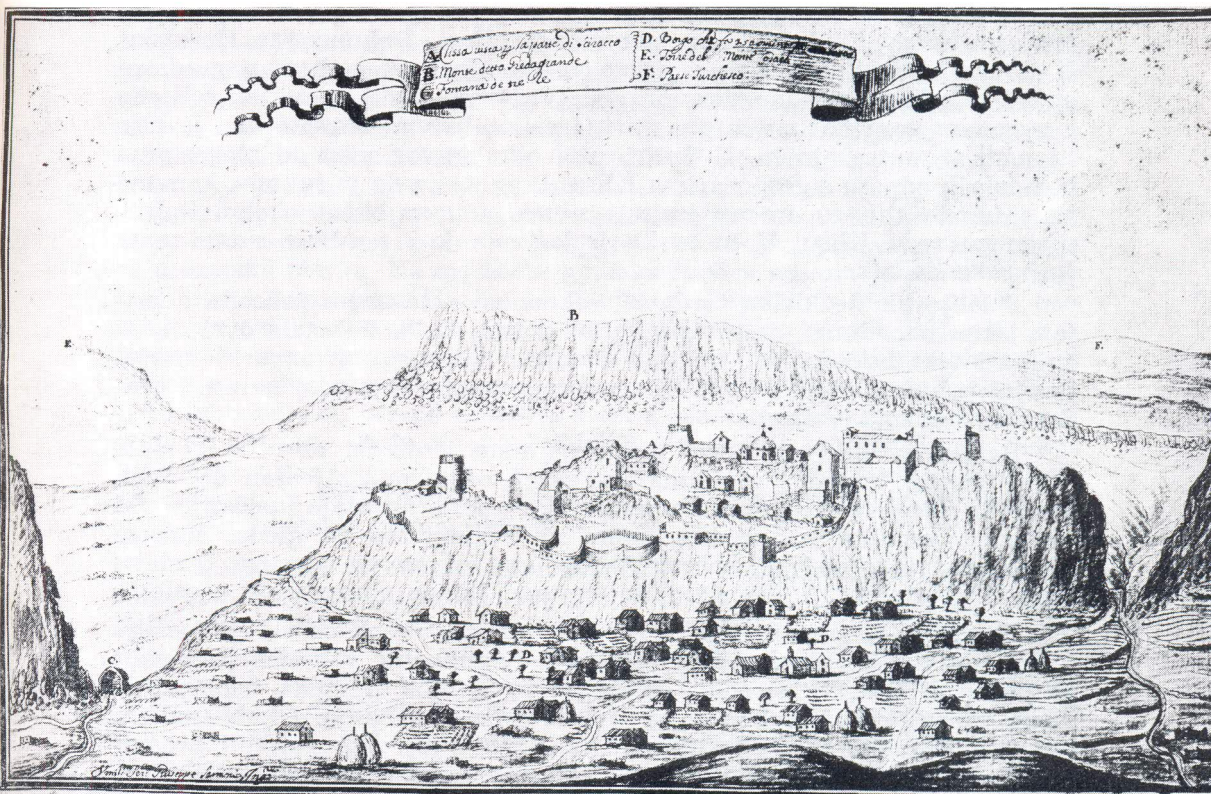 A. Clissa vista p la parte di Scirocco
B. Monte detto Gredagrande
C. Fontana de tre Re
D. Borgo che
E. Torre del Monte
F. Paese Turchesco
B
E.
F.
D
C.
Giuseppe